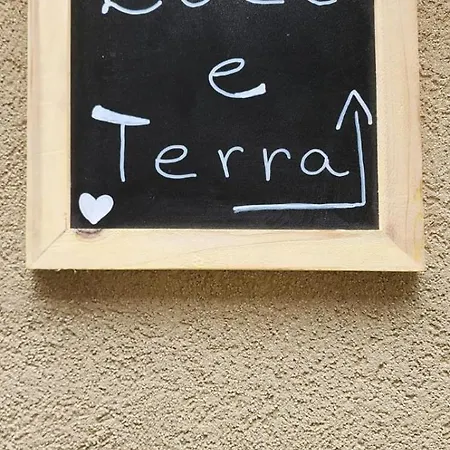 e
Terra